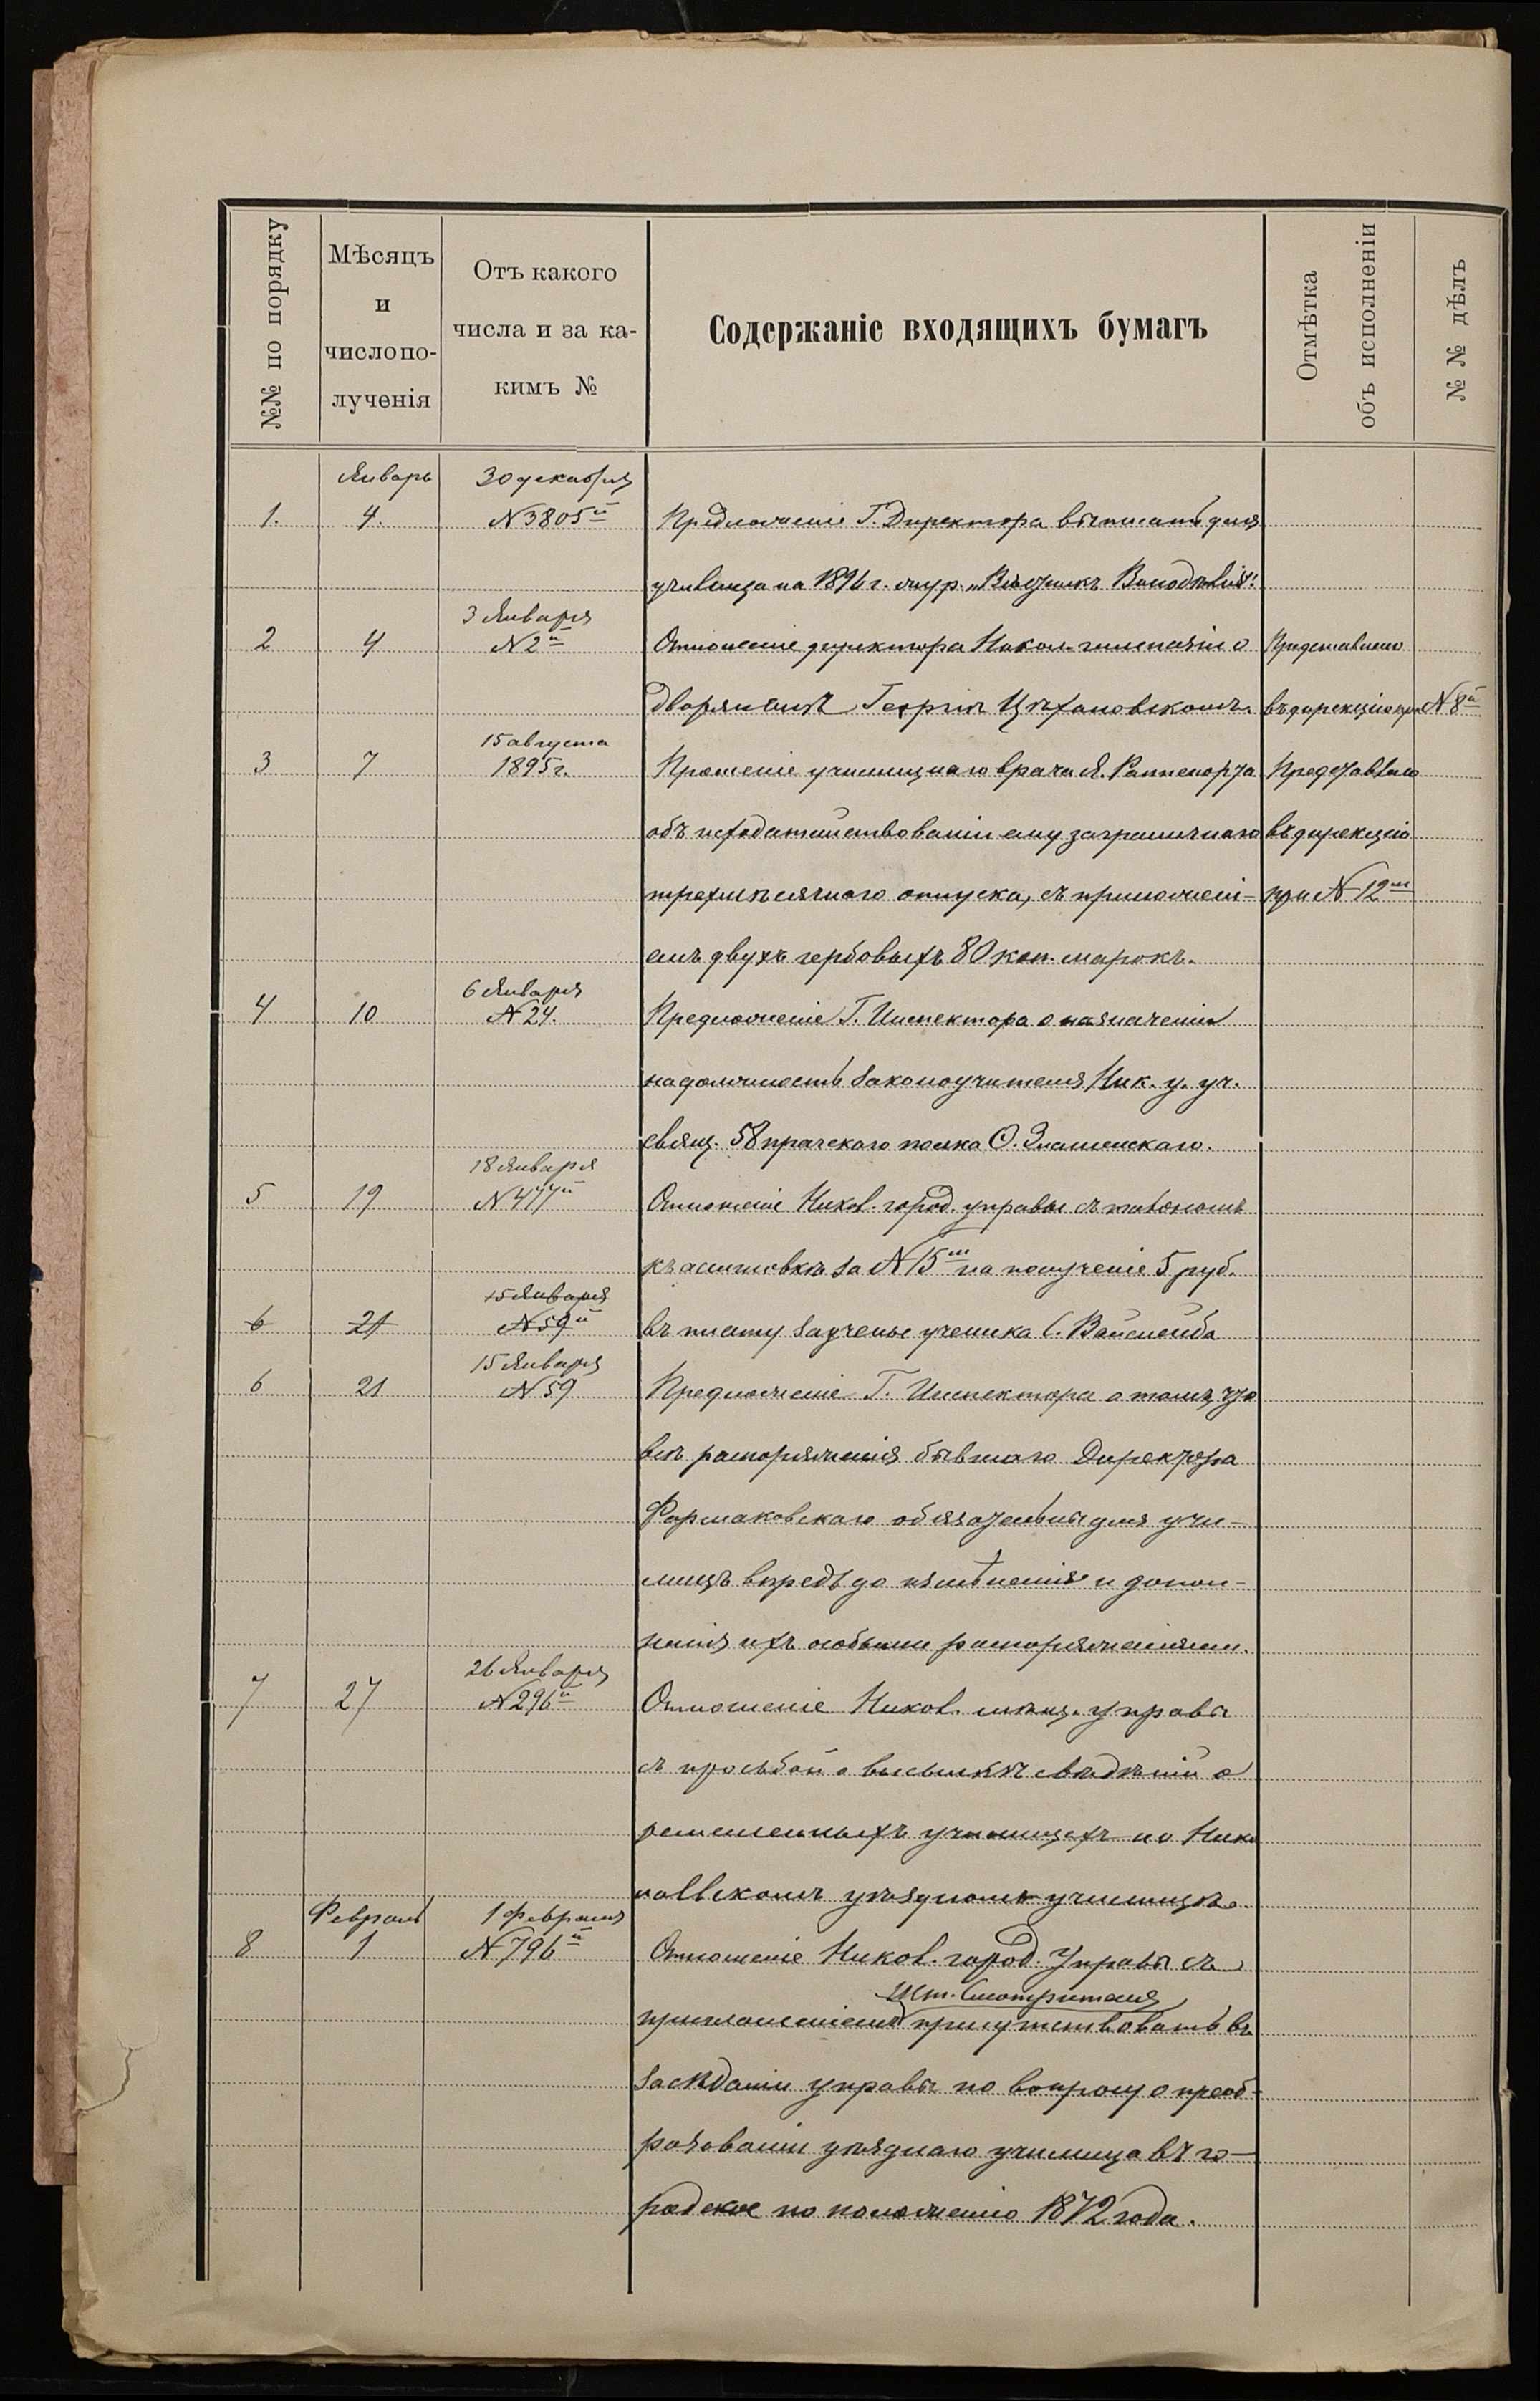 №№ по порядку
Мѣсяцъ
и
число по-
лученія
Отъ какого
числа и за ка-
кимъ №
Содержаніе входящихъ бумагъ
Отмѣтка
объ исполненіи
№ № дѣлъ
Январь 30 декабря
1. 4. № 3805й Предложеніе Г. Директора выписать для
училища на 1896 г. жур. „Вѣстникъ Винодѣлія".
3 Января
2 4 № 2й Отношеніе директора Никол. гимназіи о Представлено
дворянинѣ Георгіи Цѣхановскомъ. въ дирекцію при № 8й
15 августа
3 7 1895 г. Прошеніе училищнаго врача Я. Раппепорта Представлено
объ исходатайствованіи ему заграничнаго въ дирекцію
трехмѣсячнаго отпуска, съ приложені- при № 12м
емъ двухъ гербовыхъ 80 коп. марокъ.
6 Января
4 10 № 24. Предложеніе Г. Инспектора о назначеніи
на должность Законоучителя Ник. у. уч.
свящ. 58 прагскаго полка О. Знаменскаго.
18 Января
5 19 № 477й Отношеніе Никол. город. управы съ талономъ
къ асигновкѣ за № 15м на полученіе 5 руб.
15 Января
6 21 № 59й въ плату за ученье ученика С.
15 Января
6 21 № 59 Предложеніе Г. Инспектора о томъ, что
всѣ распоряженія бывшаго Директора
Фармаковскаго обязательны для учи-
лищъ впредь до измѣненія и допол-
ненія ихъ особыми распоряженіями.
26 Января
7 27 № 296й Отношеніе Никол. мѣщ. управы
съ просьбой о высылкѣ свѣдѣній о
ремесленныхъ училищахъ по Нико
лаевскомъ уѣздномъ училищѣ.
Февраль 1 февраля
8 1 № 796й Отношеніе Никол. город. Управы съ
Шт. Смотрителя
приглашеніемъ присутствовать въ
засѣданіи управы по вопросу о преоб-
разованіи уѣзднаго училища въ го-
родское по положенію 1872 года.